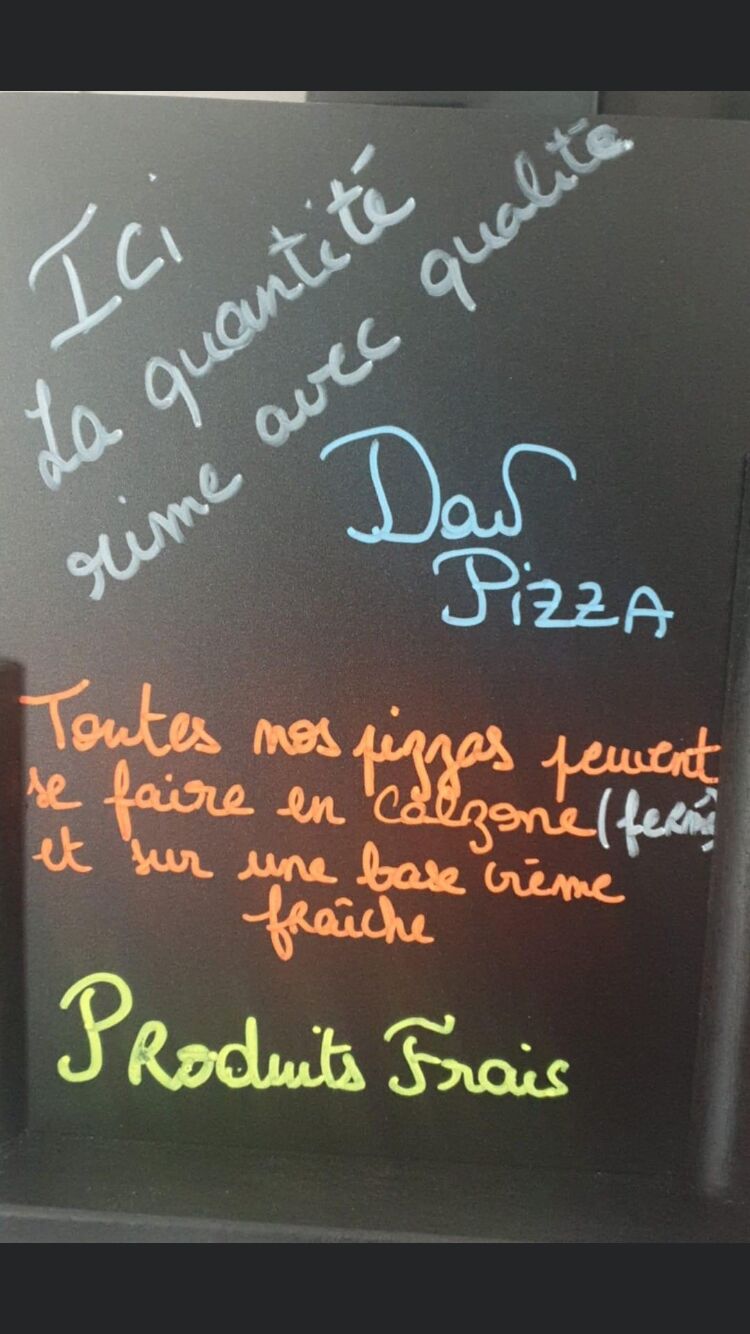 Ici
La quantité
rime avec qualité
Dav
PIZZA
Toutes nos pizzas peuvent
se faire en calzone (fermé
et sur une base crème
fraîche
Produits Frais